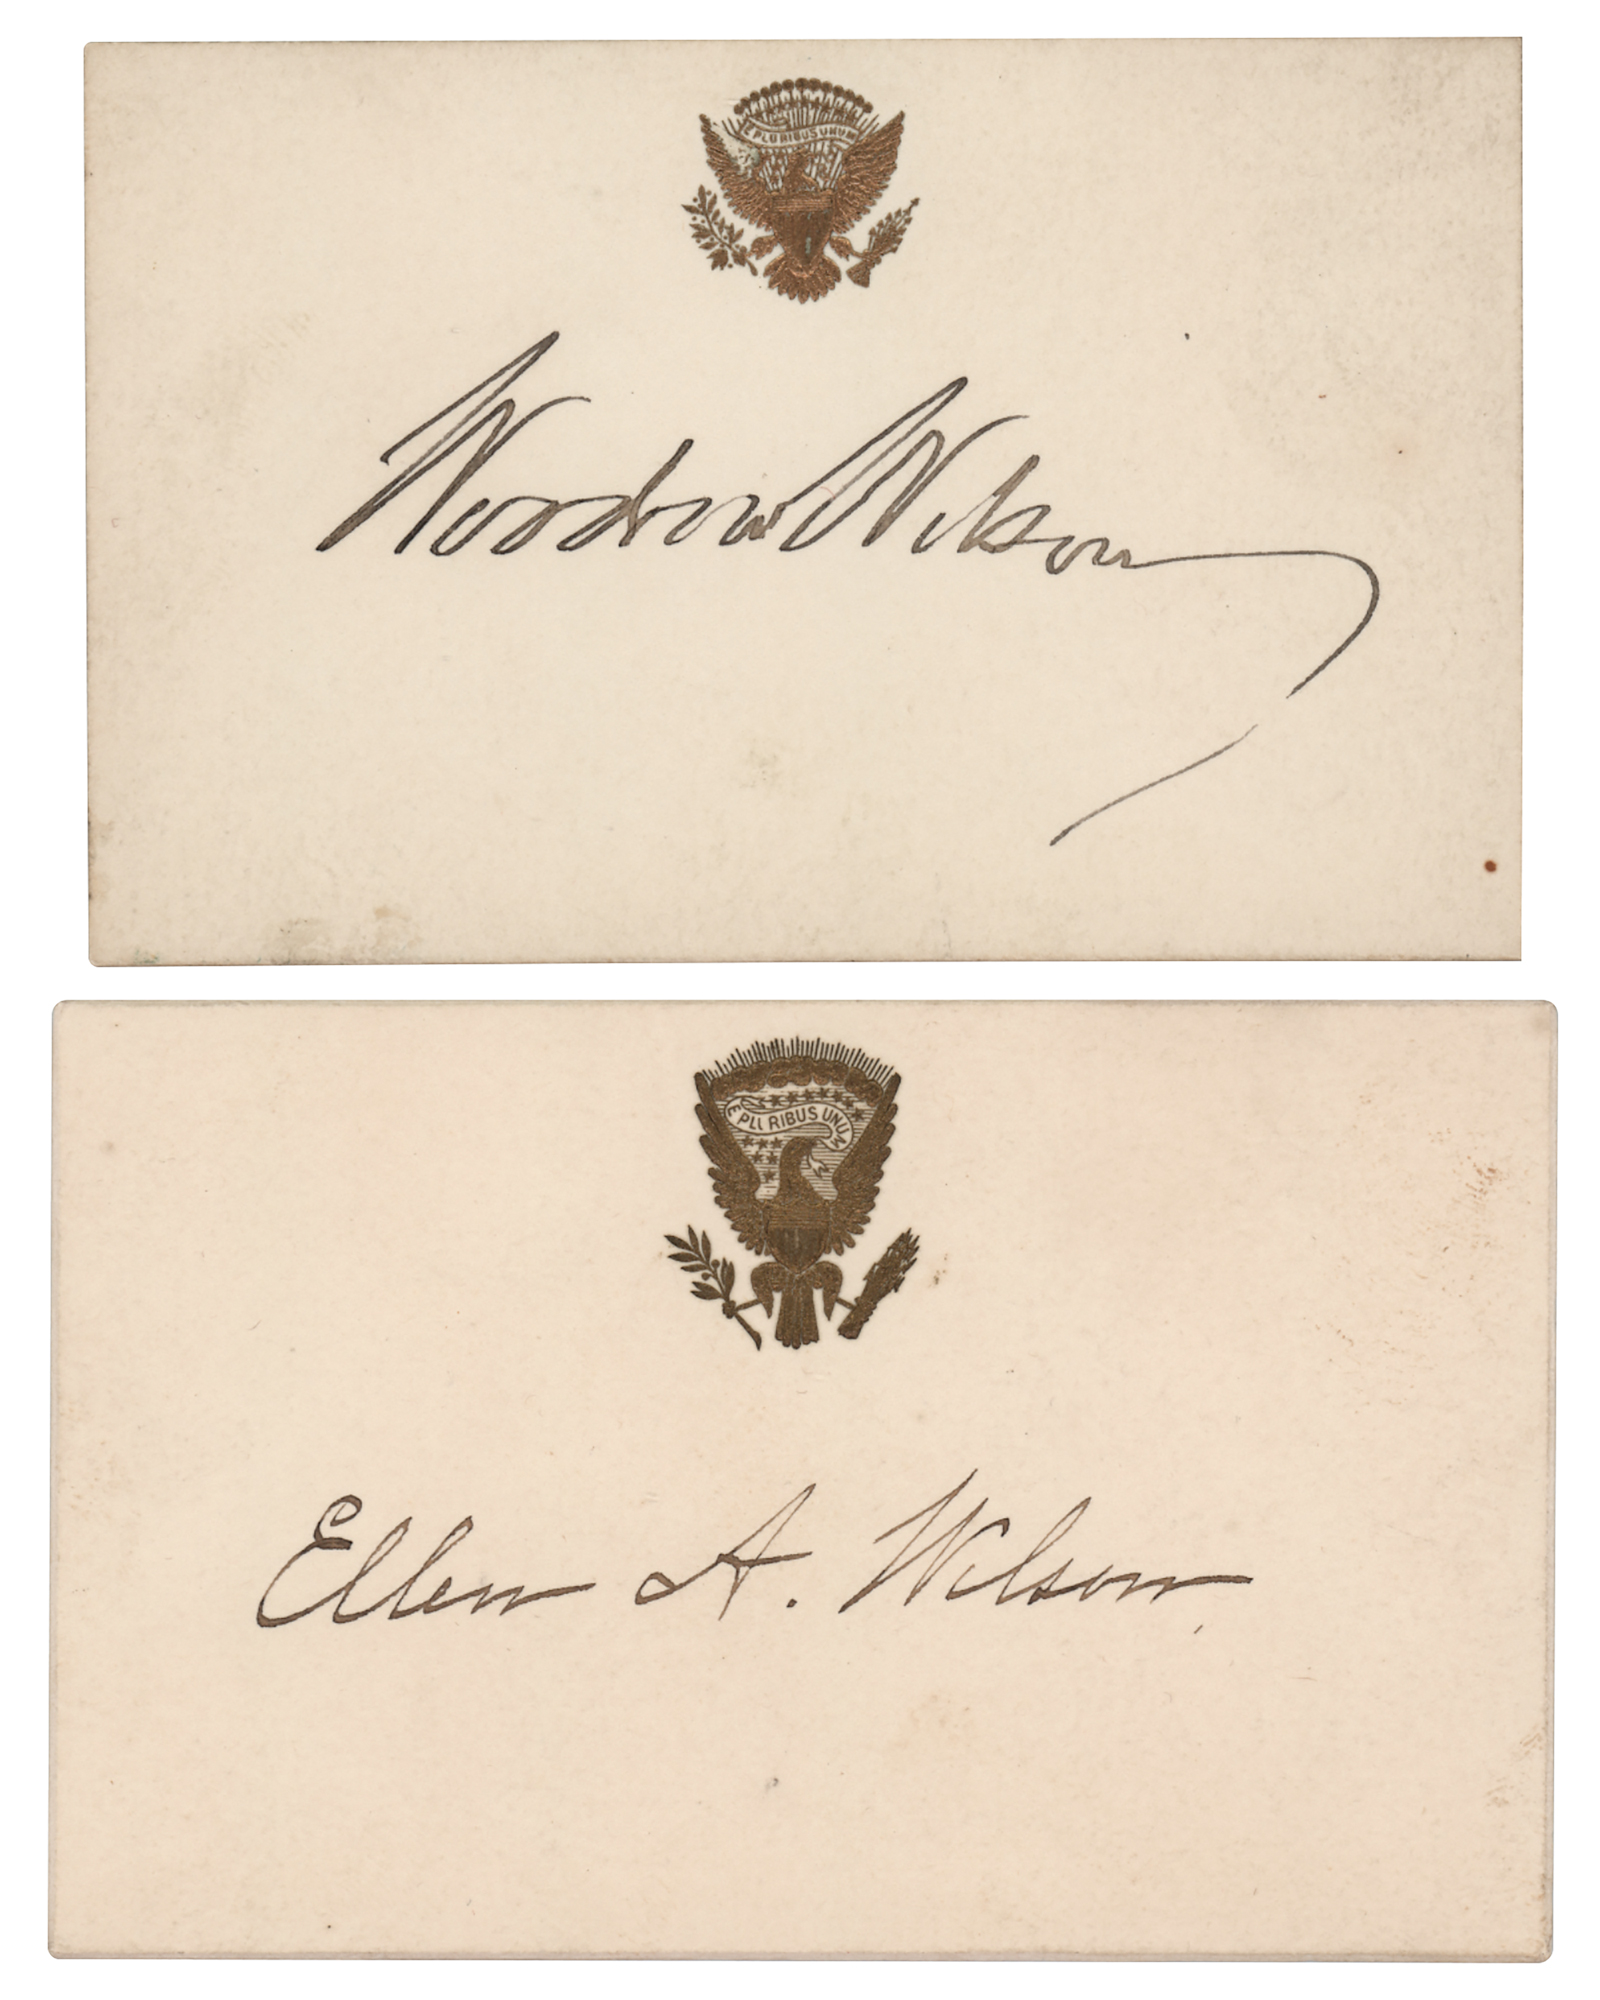 E PLURIBUS UNUM
Woodrow Wilson
E PLURIBUS UNUM
Ellen A. Wilson